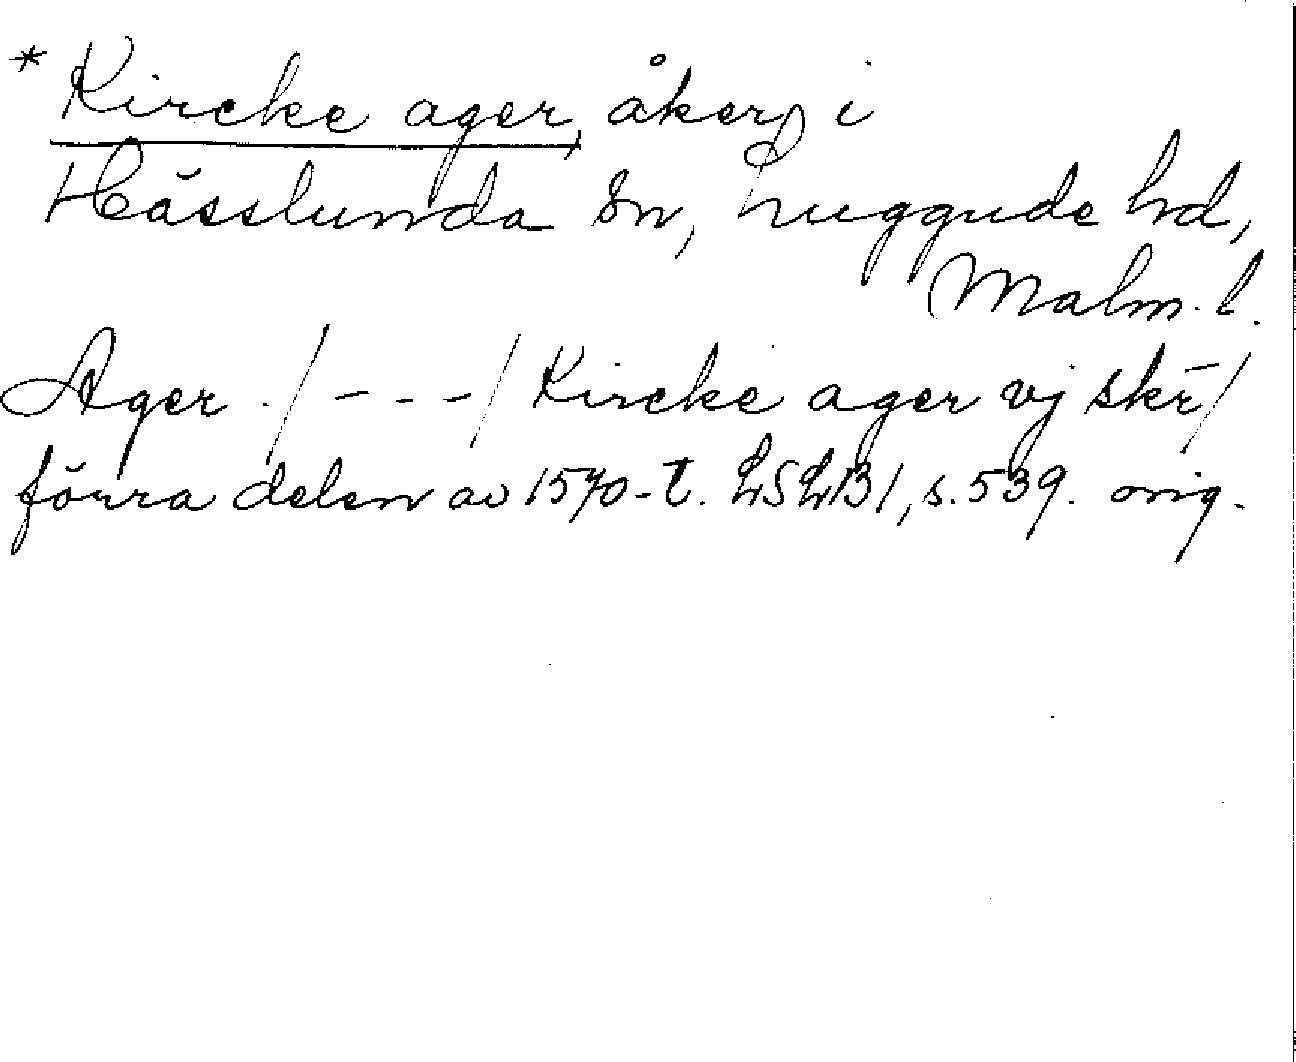 * Kircke ager, åker, i
Hässlunda sn, Luggude hd,
Malm. l.
Ager . / - - - / Kircke ager vj skr̄ /
förra delen av 1570-t. LSLB1, s. 539. orig.